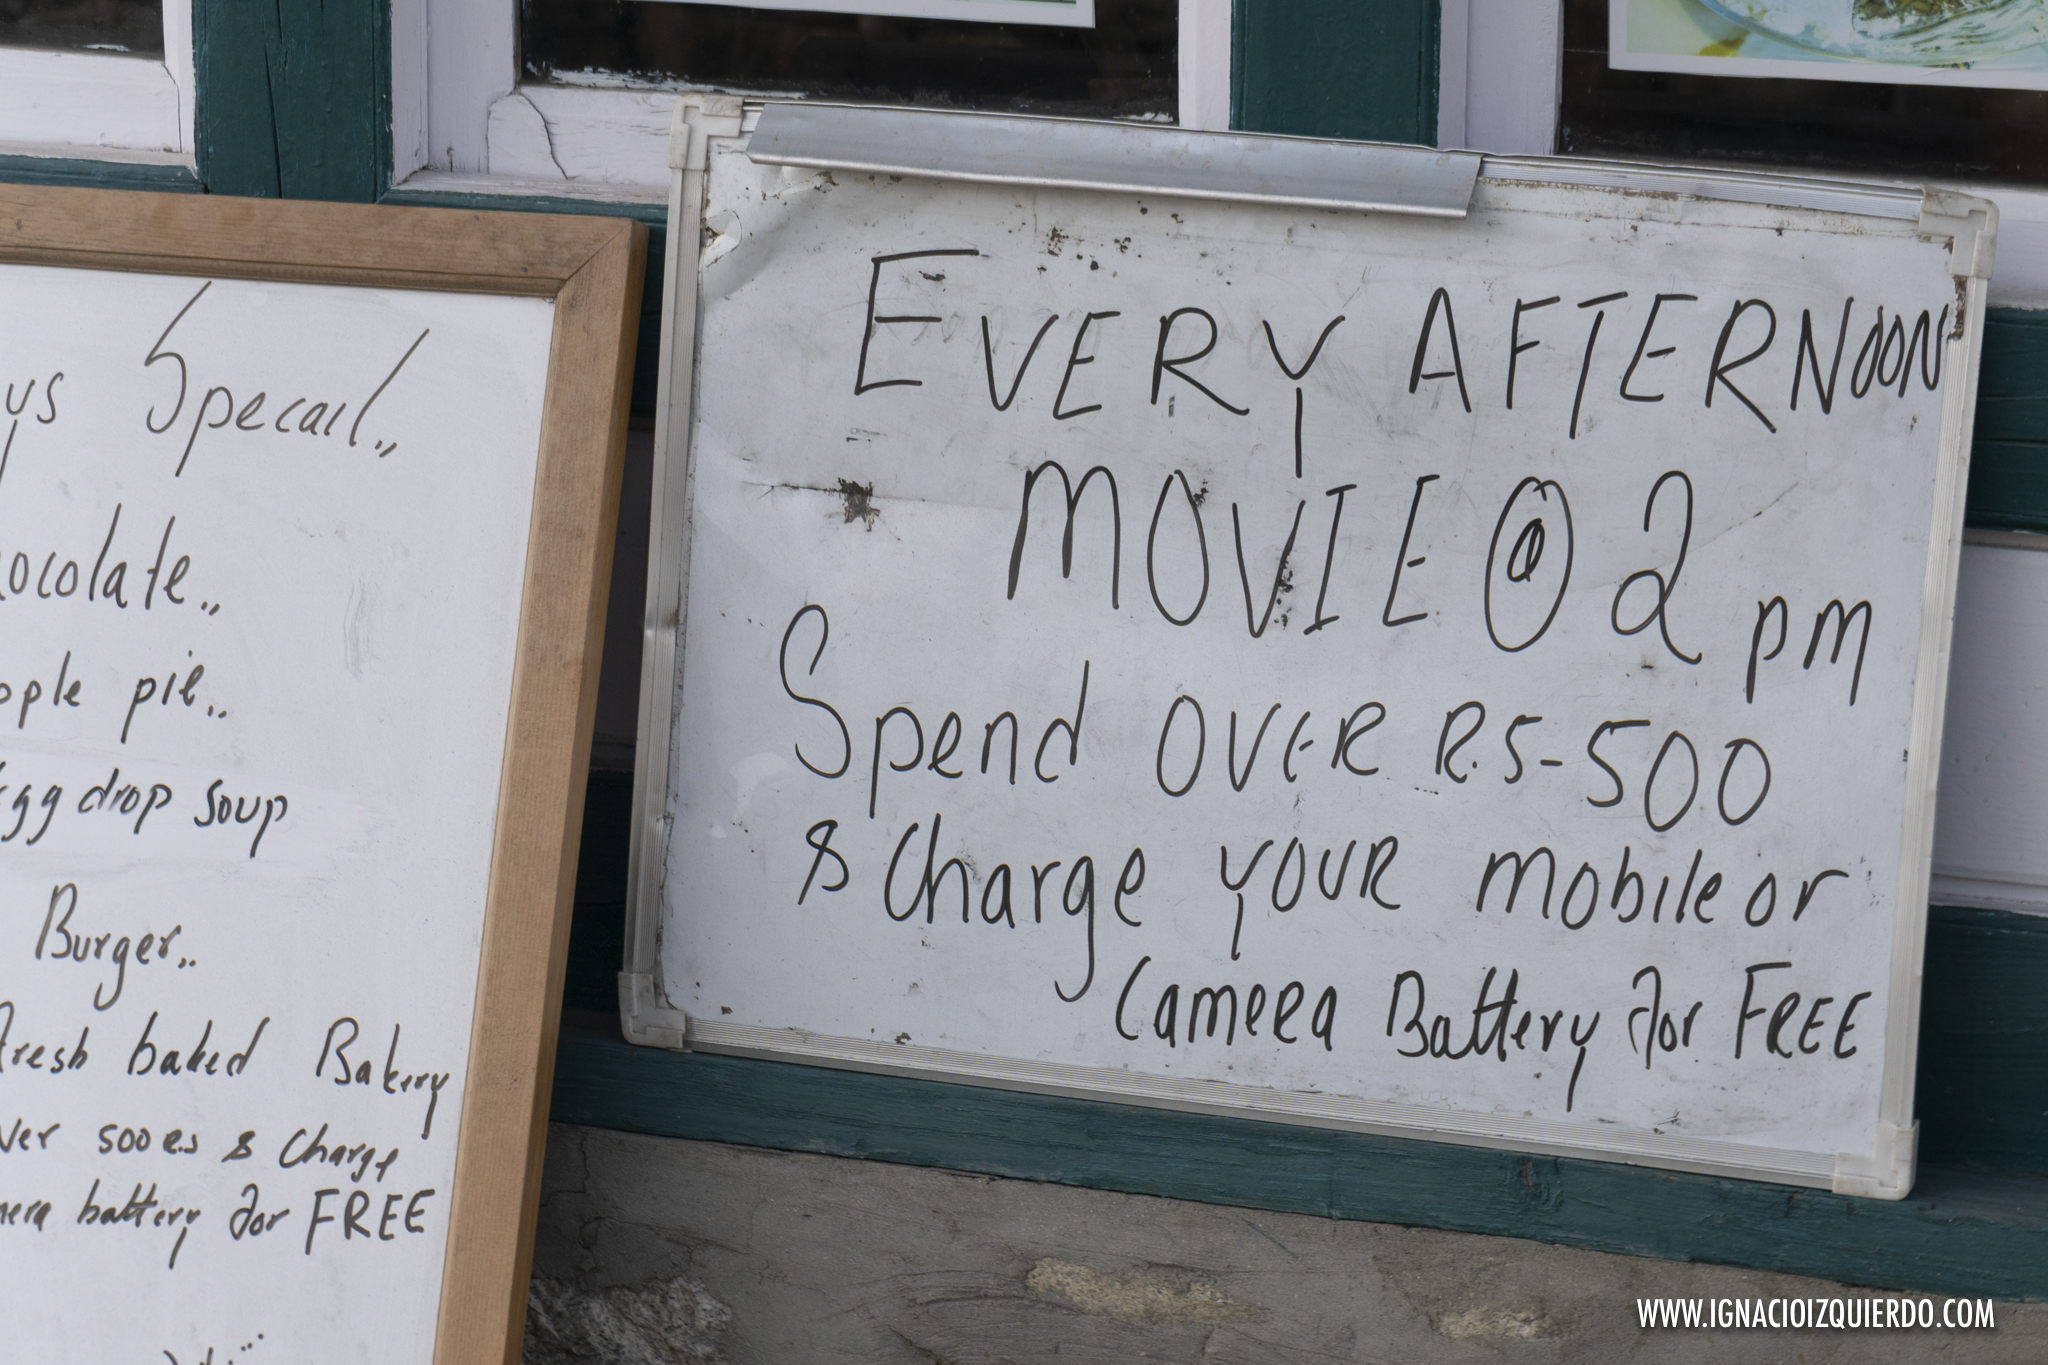 Specail,,
pie,,
drop soup
Burger,,
baked Bakery
500 R.s & Charge
battery for FREE
EVERY AFTERNOON
MOVIE @ 2 pm
Spend OVER R.S-500
& Charge YOUR mobile or
Camera Battery for FREE
WWW.IGNACIOIZQUIERDO.COM